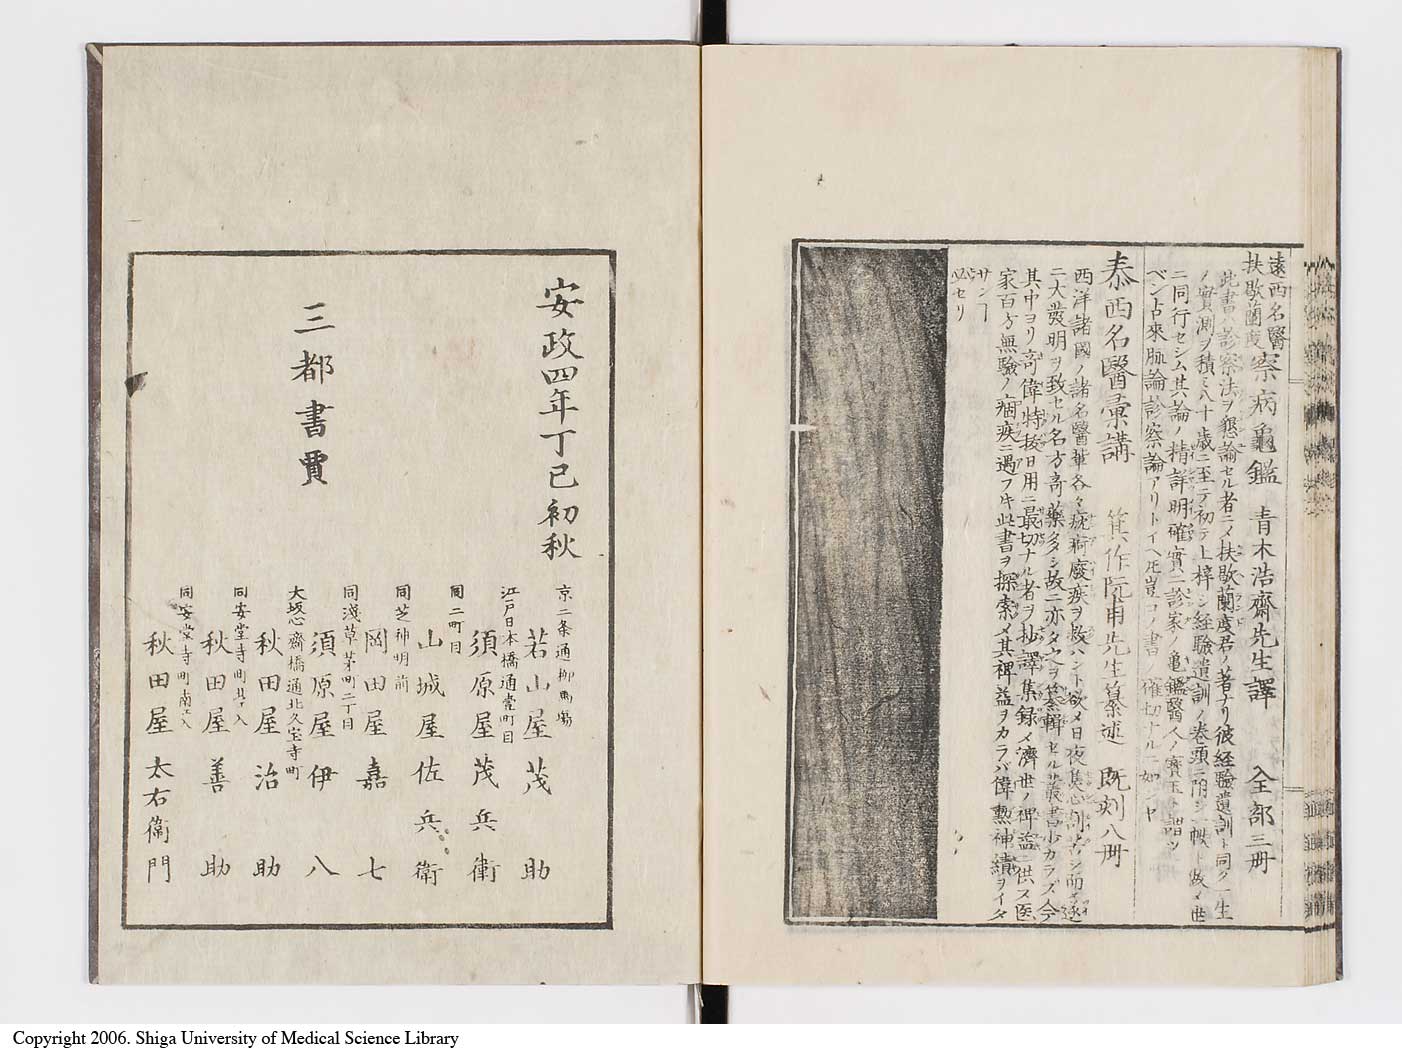 遠西名醫
扶歇蘭度
察病龜鑑　青木浩齋先生譯　全部三册
此書ハ診察法ヲ懇論セル者ニメ扶歇蘭度君ノ著ナリ彼經驗遺訓ト同ク一生
ノ實測ヲ積ミ八十歳ニ至テ初テ上梓シ經驗遺訓ノ巻頭ニ附シ一帙ト做メ世
ニ同行セシム其論ノ精詳明確實ニ診家ノ龜鑑醫人ノ寶玉ト謂ツ
ベシ古來脈論診察論アリトイヘ𪜈豈コノ書ノ確切ナルニ如ンヤ
泰西名醫彙講　箕作阮甫先生纂述　既刻八册
西洋諸國ノ諸名醫輩各々疣痾廢疾ヲ救ハント欲メ日夜焦心刻苦シ而メ遂
ニ大發明ヲ致セル名方奇藥タ多シ故ニ亦タ之ヲ纂輯セル叢書少カラズ今
其中ヨリ奇偉特抜日用ニ最切ナル者ヲ抄譯集録メ濟世ノ裨益ニ供ス医
家百方無驗ノ痼疾ニ遇フ𪜈此書ヲ探索メ其裨益ヲカラバ偉勲神績ヲイタ
サンヿ
必セリ
安政四年丁巳初秋
三都書賈
京二条通柳馬場
若山屋茂助
江戸日本橋通壹町目
須原屋茂兵衛
同二町目
山城屋佐兵衛
同芝神明前
岡田屋嘉七
同淺草茅町二丁目
須原屋伊八
大坂心齋橋通北久宝寺町
秋田屋治助
同安堂寺町北ヘ入
秋田屋善助
同安堂寺町南ヘ入
秋田屋太右衞門
Copyright 2006. Shiga University of Medical Science Library